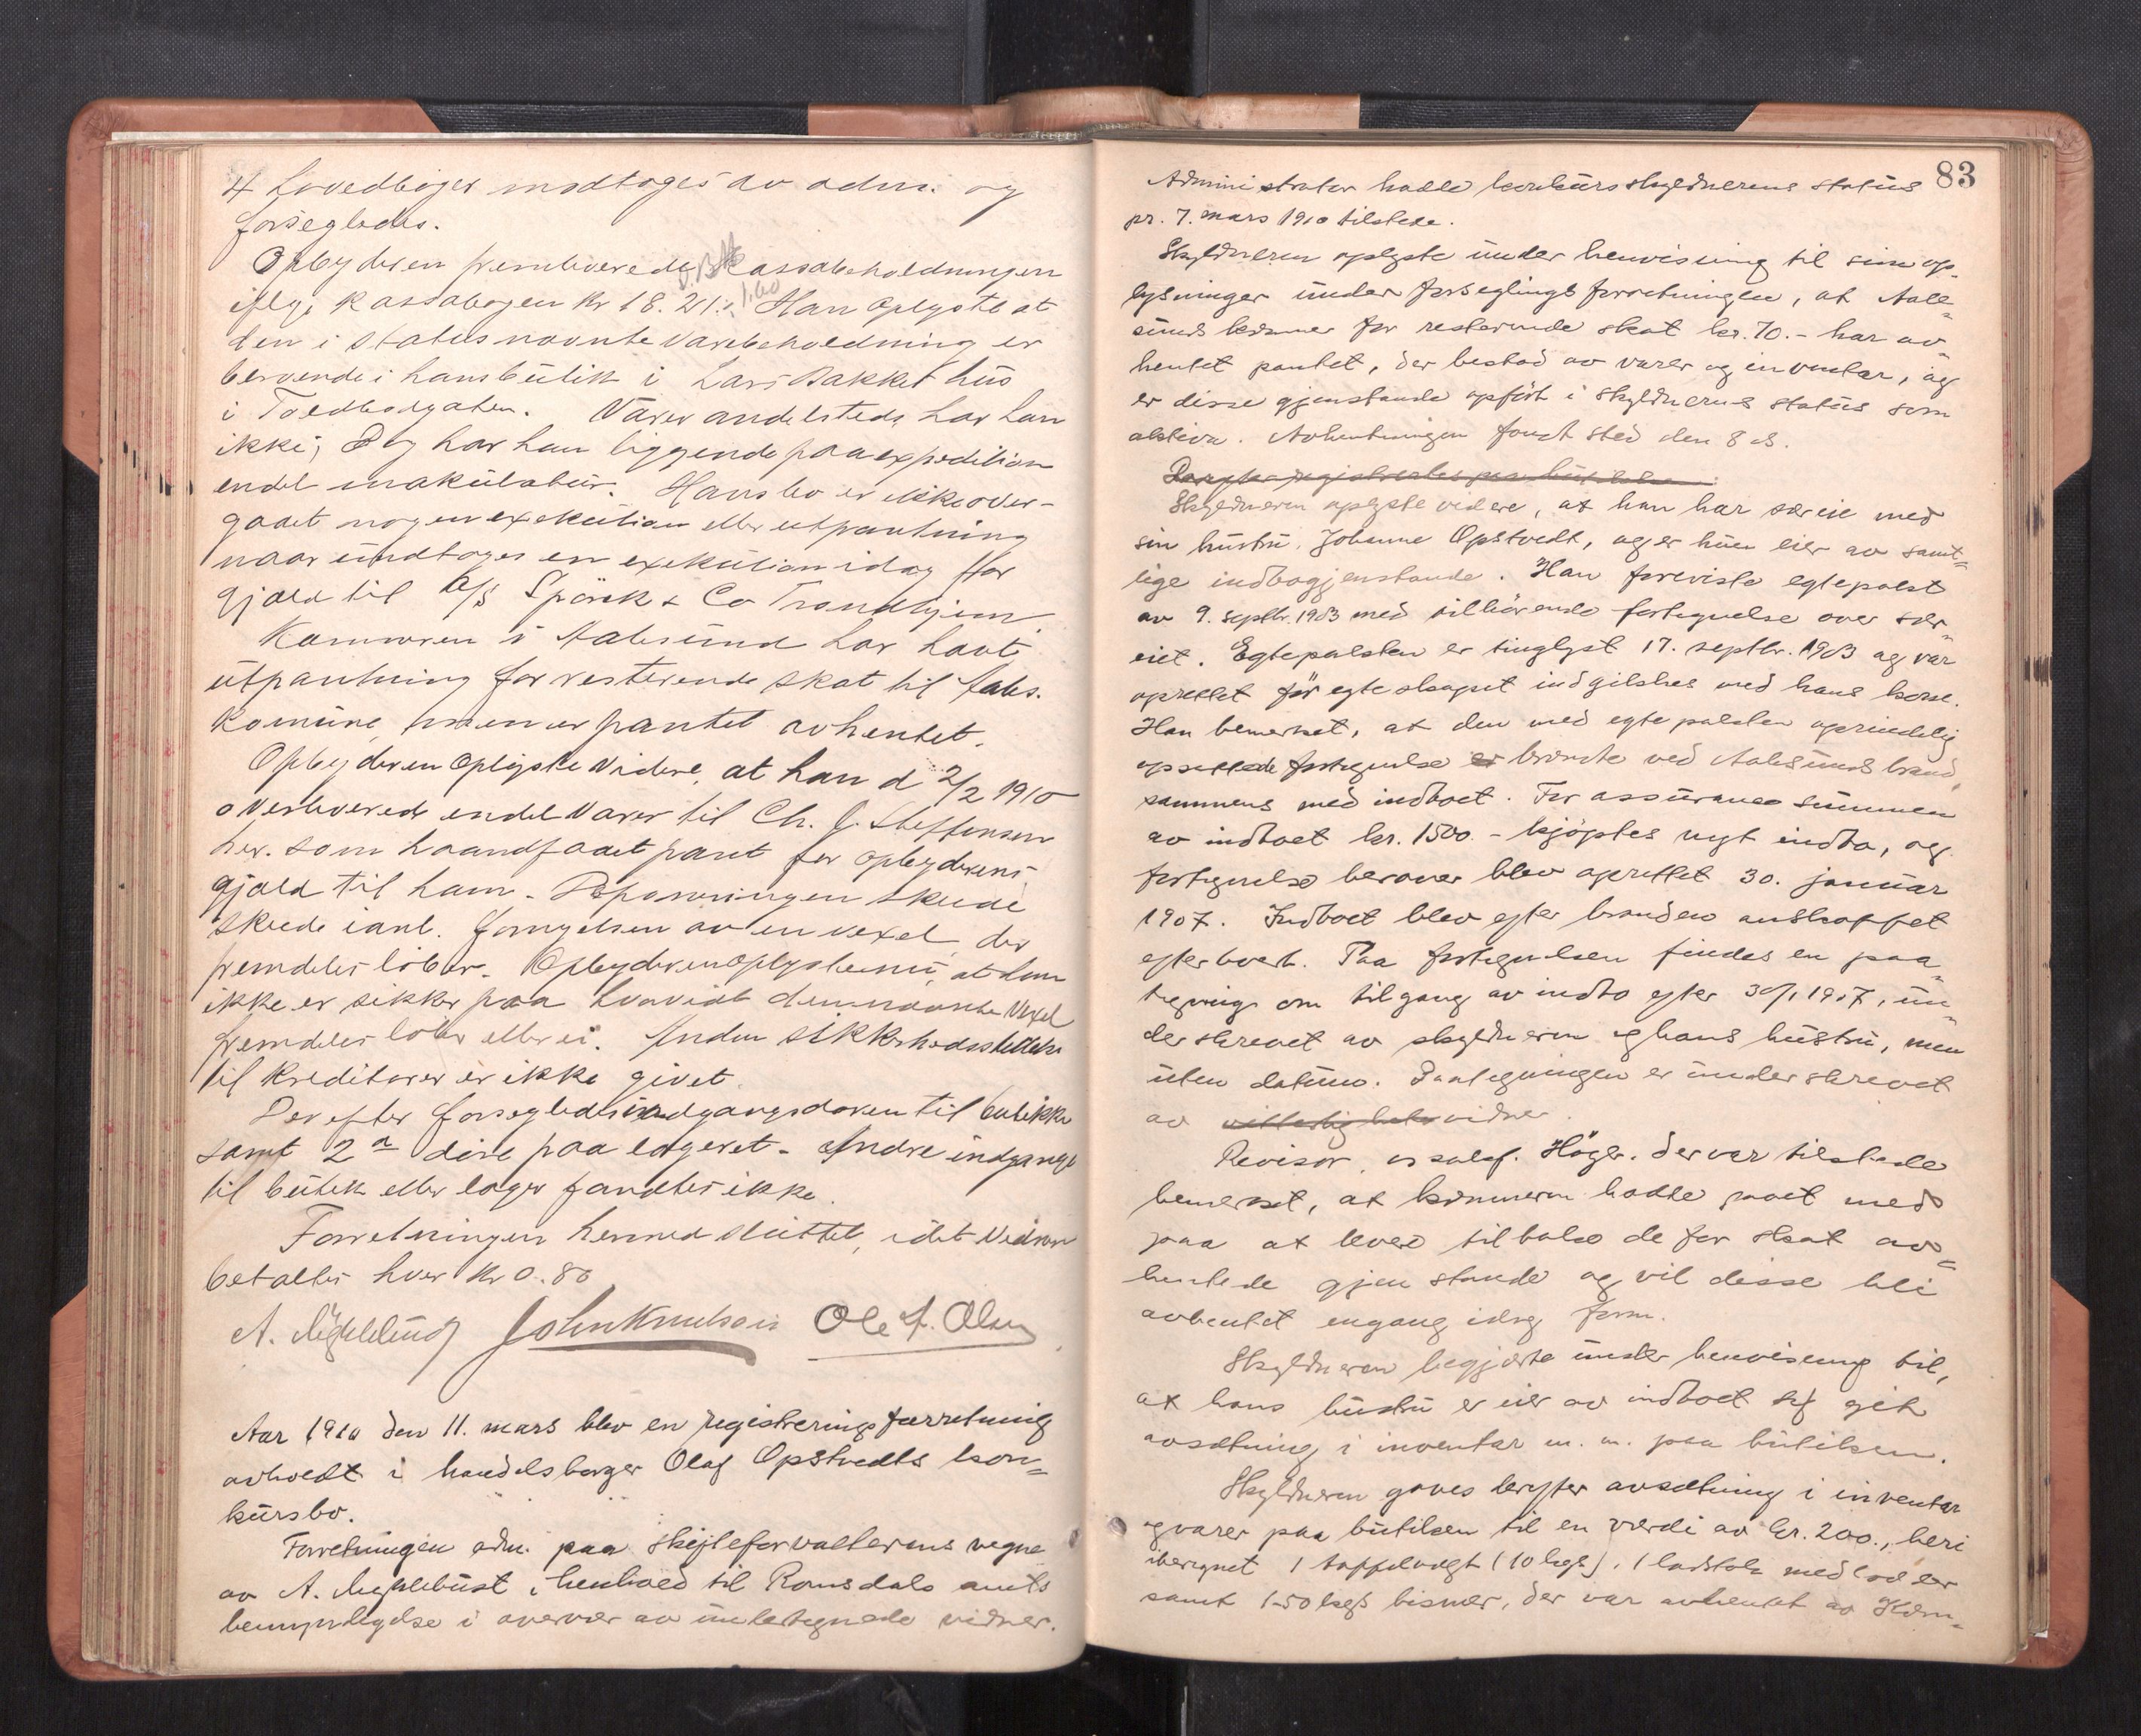 4 hovedbøger modtoges av adm. og
forsegledes.
Opbyderen fremleverede Kassabeholdningen
ifлg. Kassabogen Kr 18.21. 1.60 Han oplyste at
den i status nævnte varebeholdning er
beroende i hans butik i Lars Bakkes hus
i Toldbodgaten. Varer andetsteds har han
ikke; Dog har han liggende paa expedition
endel makulatur. Hans bo er ikke over-
gaaet nogen exekution eller utpantning
naar undtages en exekution idag for
gjæld til A/S Spörck & Co Trondhjem
Kæmneren i Aalesund har havt
utpantning for resterende skat til Aales.
Komune, men er pantet avhentet.
Opbyderen oplyste videre, at han d 2/2 1910
overleverede endel varer til Ch. J. Steffensen
her. som haandfaaet pant for opbyderens
gjæld til ham. Deponeringen skulde
skede i anl. fornyelsen av en vexel, der
fremdeles løber. Opbyderen oplyste nu, at han
ikke er sikker paa hvorvidt den nævnte vexel
fremdeles løber eller ei. Anden sikkerhedsstillelse
til kreditorer er ikke givet.
Derefter forsegledes indgangsdøren til butikken
samt 2 døre paa lageret. Andre indgange
til butik eller lager fandtes ikke.
Forretningen hermed sluttet, idet vidnene
betaltes hver Kr 0.80
A. Myklebust John Knudsen Ole A. Olsen
Aar 1910 den 11. mars blev en registreringsforretning
avholdt i handelsborger Olaf Opstvedts kon-
kursbo.
Forretningen adm. paa skifteforvalterens vegne
av A. Myklebust i henhold til Romsdals amts
bemyndigelse i overvær av undertegnede vidner.
83
Administrator hadde konkursskyldnerens status
pr. 7. mars 1910 tilstede.
Skyldneren oplyste under henvisning til sine op-
lysninger under forseglingsforretningen, at Aale-
sunds kæmner for resterende skat kr. 70.- har av-
hentet pantet, der bestod av varer og inventar, og
er disse gjenstande opført i skyldnerens status som
aktiva. Avhentningen fandt sted den 8 ds.
Derefter registrertes paa butikken
Skyldneren oplyste videre, at han har særeie med
sin hustru, Johanne Opstvedt, og er hun eier av samt-
lige indbogjenstande. Han foreviste egtepakt
av 9. septbr. 1903 med tilhørende fortegnelse over sær-
eiet. Egtepakten er tinglyst 17. septbr. 1903 og var
oprettet før egteskapet indgikkes med hans kone.
Han bemerket, at den med egtepakten oprindelig
opsettede fortegnelse er brændte ved Aalesunds brand
sammens med indboet. For assurancesummen
av indboet kr. 1500.- kjøptes nyt indbo, og
fortegnelse herover blev oprettet 30. januar
1907. Indboet blev efter branden anskaffet
efterhvert. Paa fortegnelsen findes en paa-
tegning om tilgang av indbo efter 30/1 1907, un-
derskrevet av skyldneren og hans hustru, men
uten datum. Paategningen er underskrevet
av vitterlighets vidner.
Revisor, o.r.sakf. Högh. der var tilstede
bemerket, at kæmneren hadde gaaet med
paa at levere tilbake de for skat av-
hentede gjenstande og vil disse bli
avhentet engang idag form.
Skyldneren begjærte under henvisning til,
at hans hustru er eier av indboet sig git
avsætning i inventar m. m. paa butikken.
Skyldneren gaves derefter avsætning i inventar
og varer paa butikken til en værdi av kr. 200., heri
iberegnet 1 taffelvægt (10 kgs), 1 ladstok med lodder
samt 1-50 kgs bismer, der var avhentet av Kæm-